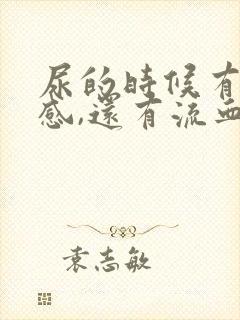 尿的時候有
感,還有流血
袁志敏